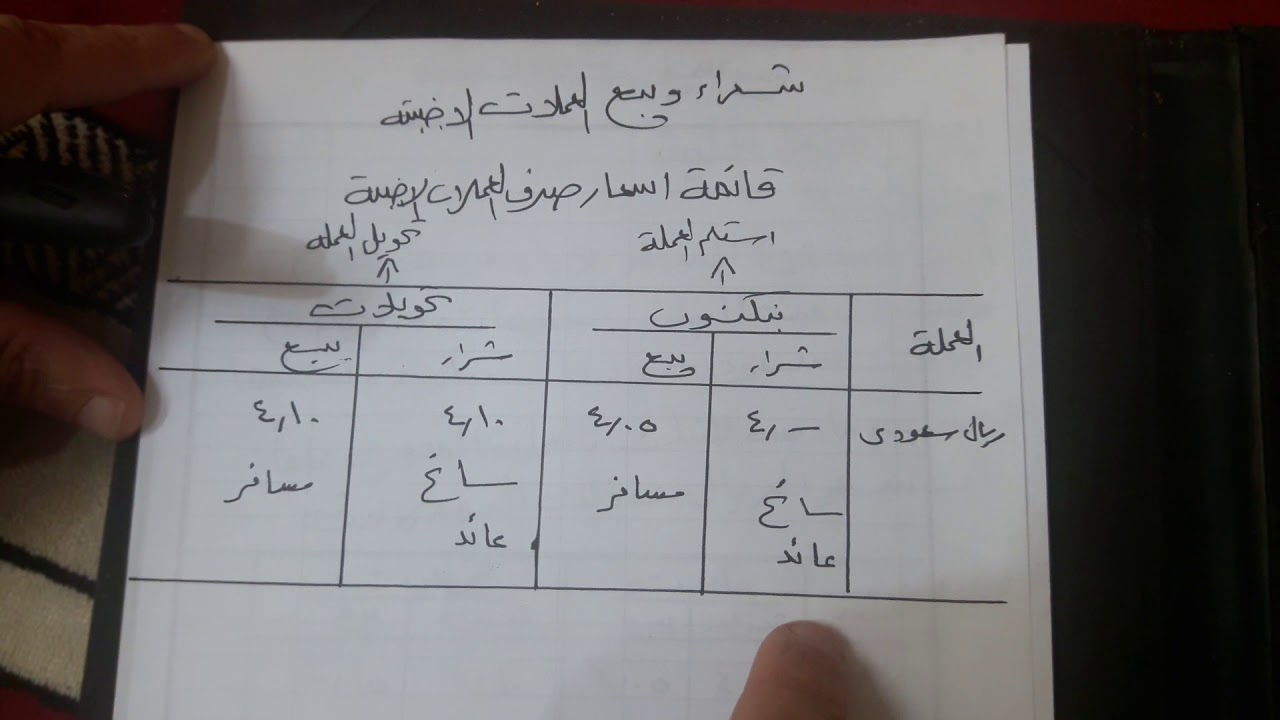 شراء وبيع العملات الاجنبية
قائمة اسعار صرف العملات الاجنبية
استلم العملة تحويل العملة
العملة بنكنوت تحويلات
شراء بيع شراء بيع
ريال سعودى ٤٫٠٠ ٤٫٠٥ ٤٫١٠ ٤٫١٠
سائح مسافر سائح مسافر
عائد عائد